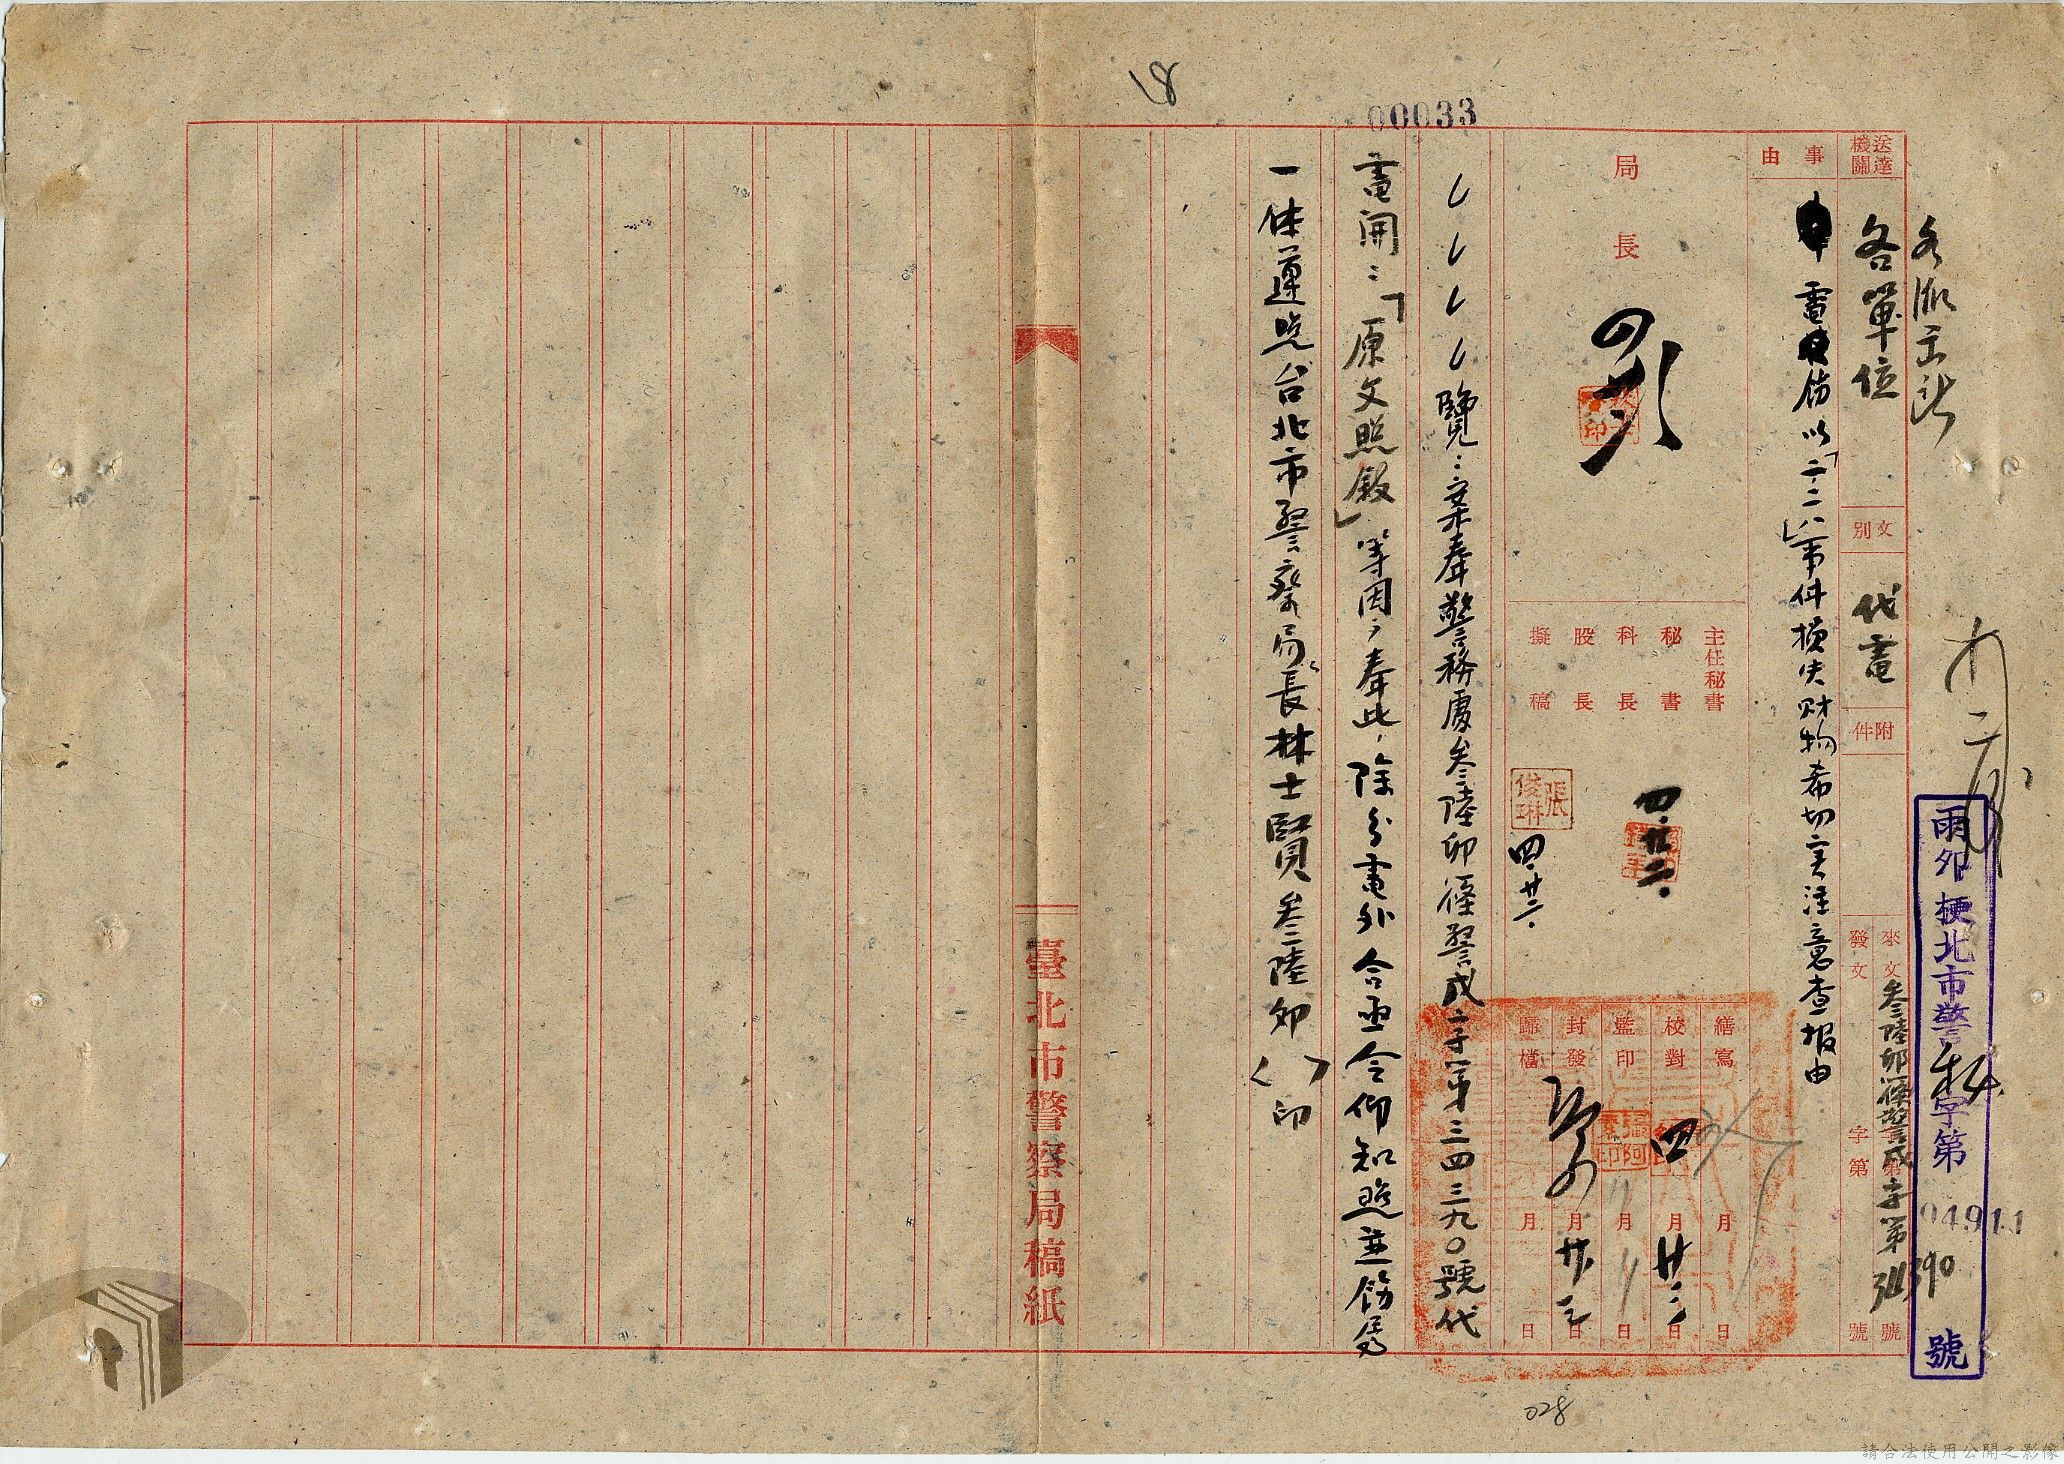 00033
18
各派出所
送達機關
各單位
文別
代電
附件
來文叁陸卯篠警戍字第34390號
發文 字第 號
雨卯梗北市警 字第 04911 號
事由
電飭以「二二八」事件損失財物希切實注意查報由
局長
主任秘書
秘書
科長
股長
擬稿
四.廿二.
張俊琳
四.廿二.
繕寫 月 日
校對 四月廿三日
監印 月 日
封發 月廿三日
歸檔 月 日
覽：案奉警務處叁陸卯篠警戍字第三四三九〇號代
電開：「原文照敘」等因，奉此，除分電外合亟令仰知照並飭屬
一体遵照台北市警察局長林士賢叁陸卯（ ）印
臺北市警察局稿紙
028
請合法使用公開之影像